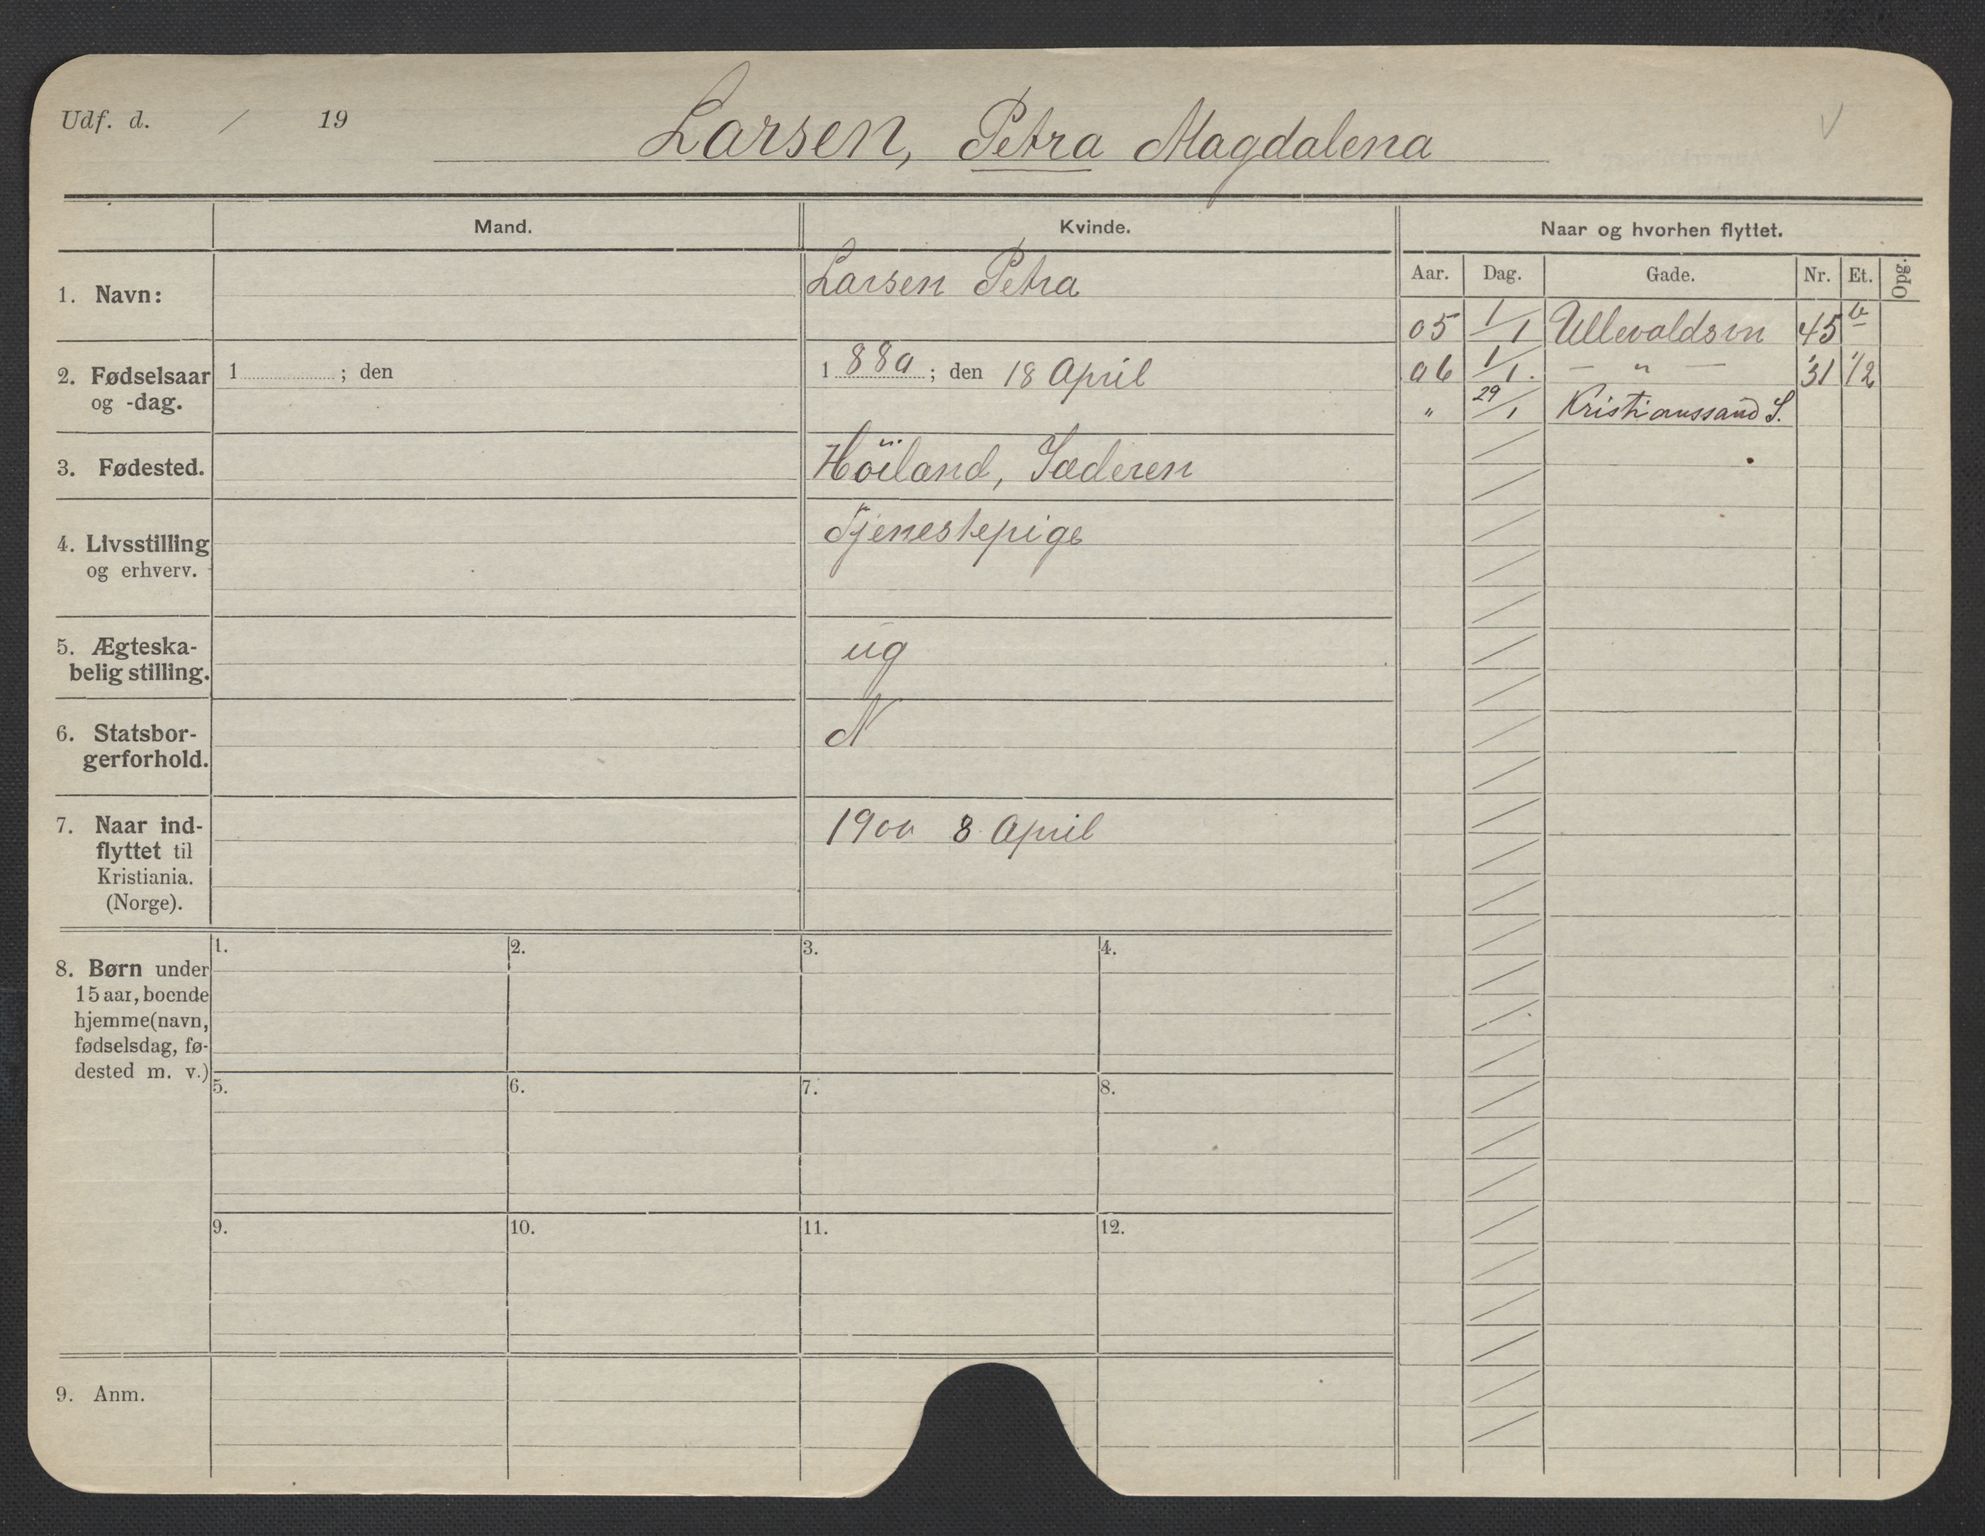 Udf. d. / 19
Larsen, Petra Magdalena
Mand.
Kvinde.
Naar og hvorhen flyttet.
Aar. Dag. Gade. Nr. Et. Opg.
05 1/1 Ullevoldsvn 45
06 1/1 — „ — 31 1/2
„ 29/1 Kristianssand S.
1. Navn:
Larsen Petra
2. Fødselsaar
og -dag.
1 ; den
1 880 ; den 18 April
3. Fødested.
Höiland, Jæderen
4. Livsstilling
og erhverv.
Tjenestepige
5. Ægteska-
belig stilling.
ug
6. Statsbor-
gerforhold.
N
7. Naar ind-
flyttet til
Kristiania.
(Norge).
1900 8 April
8. Børn under
15 aar, boende
hjemme (navn,
fødselsdag, fø-
dested m. v.)
1. 2. 3. 4.
5. 6. 7. 8.
9. 10. 11. 12.
9. Anm.